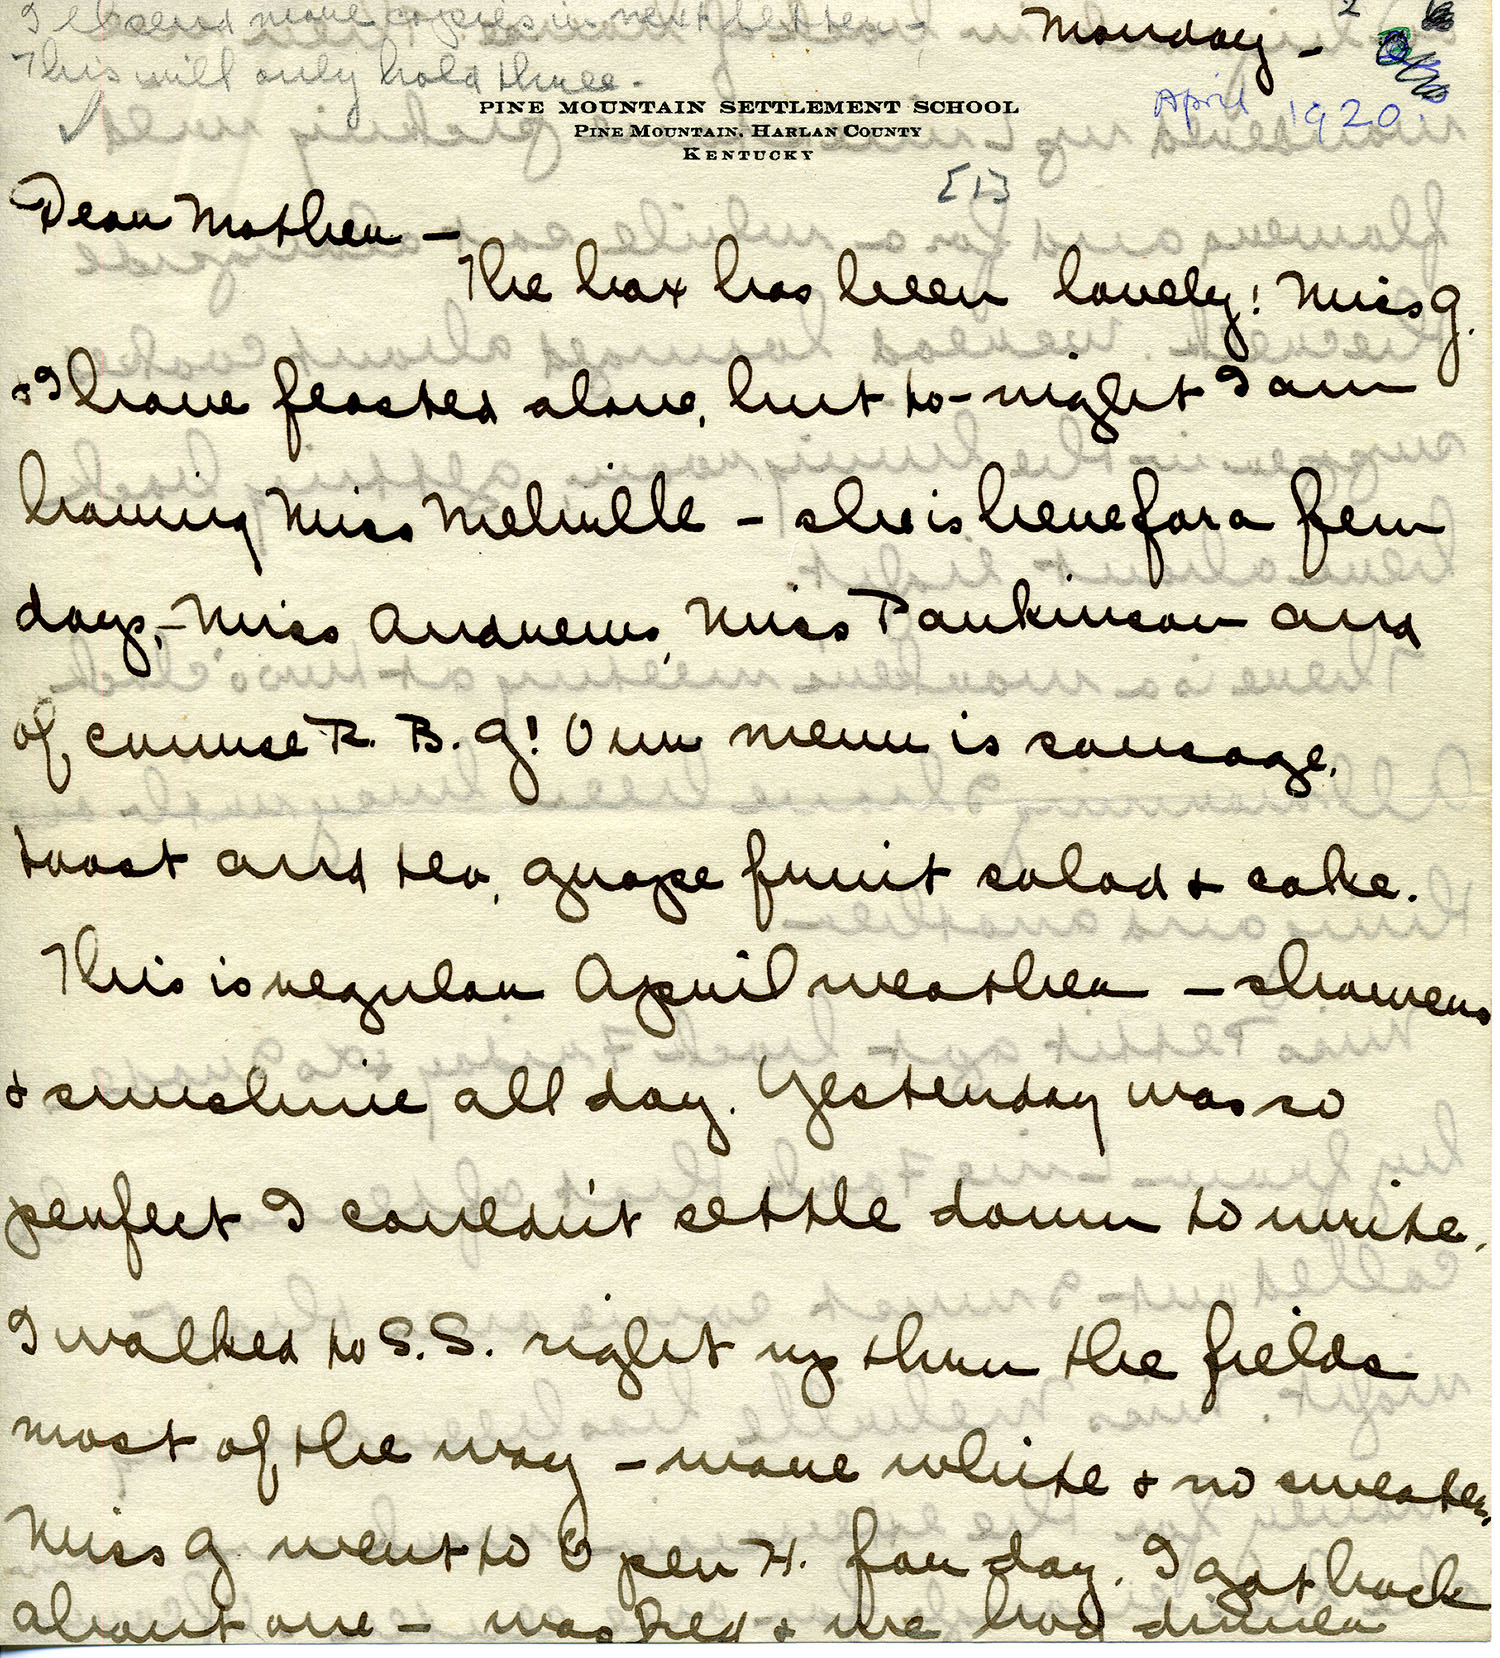 I'll send more copies in next letter -
This will only hold three.
Monday -
April 1920.
PINE MOUNTAIN SETTLEMENT SCHOOL
PINE MOUNTAIN, HARLAN COUNTY
KENTUCKY
[1]
Dear Mother -
The box has been lovely! Miss G.
& I have feasted alone, but to-night I am
having Miss Melville - she is here for a few
days, - Miss Andrews, Miss Parkinson and
of course R. B. G! Our menu is sausage,
toast and tea, grape fruit salad & cake.
This is regular April weather - showers
& sunshine all day. Yesterday was so
perfect I couldn't settle down to write.
I walked to S.S. right up thru the fields
most of the way - wore white & no sweater.
Miss G went to Open H. for day. I got back
about one - washed & we had dinner